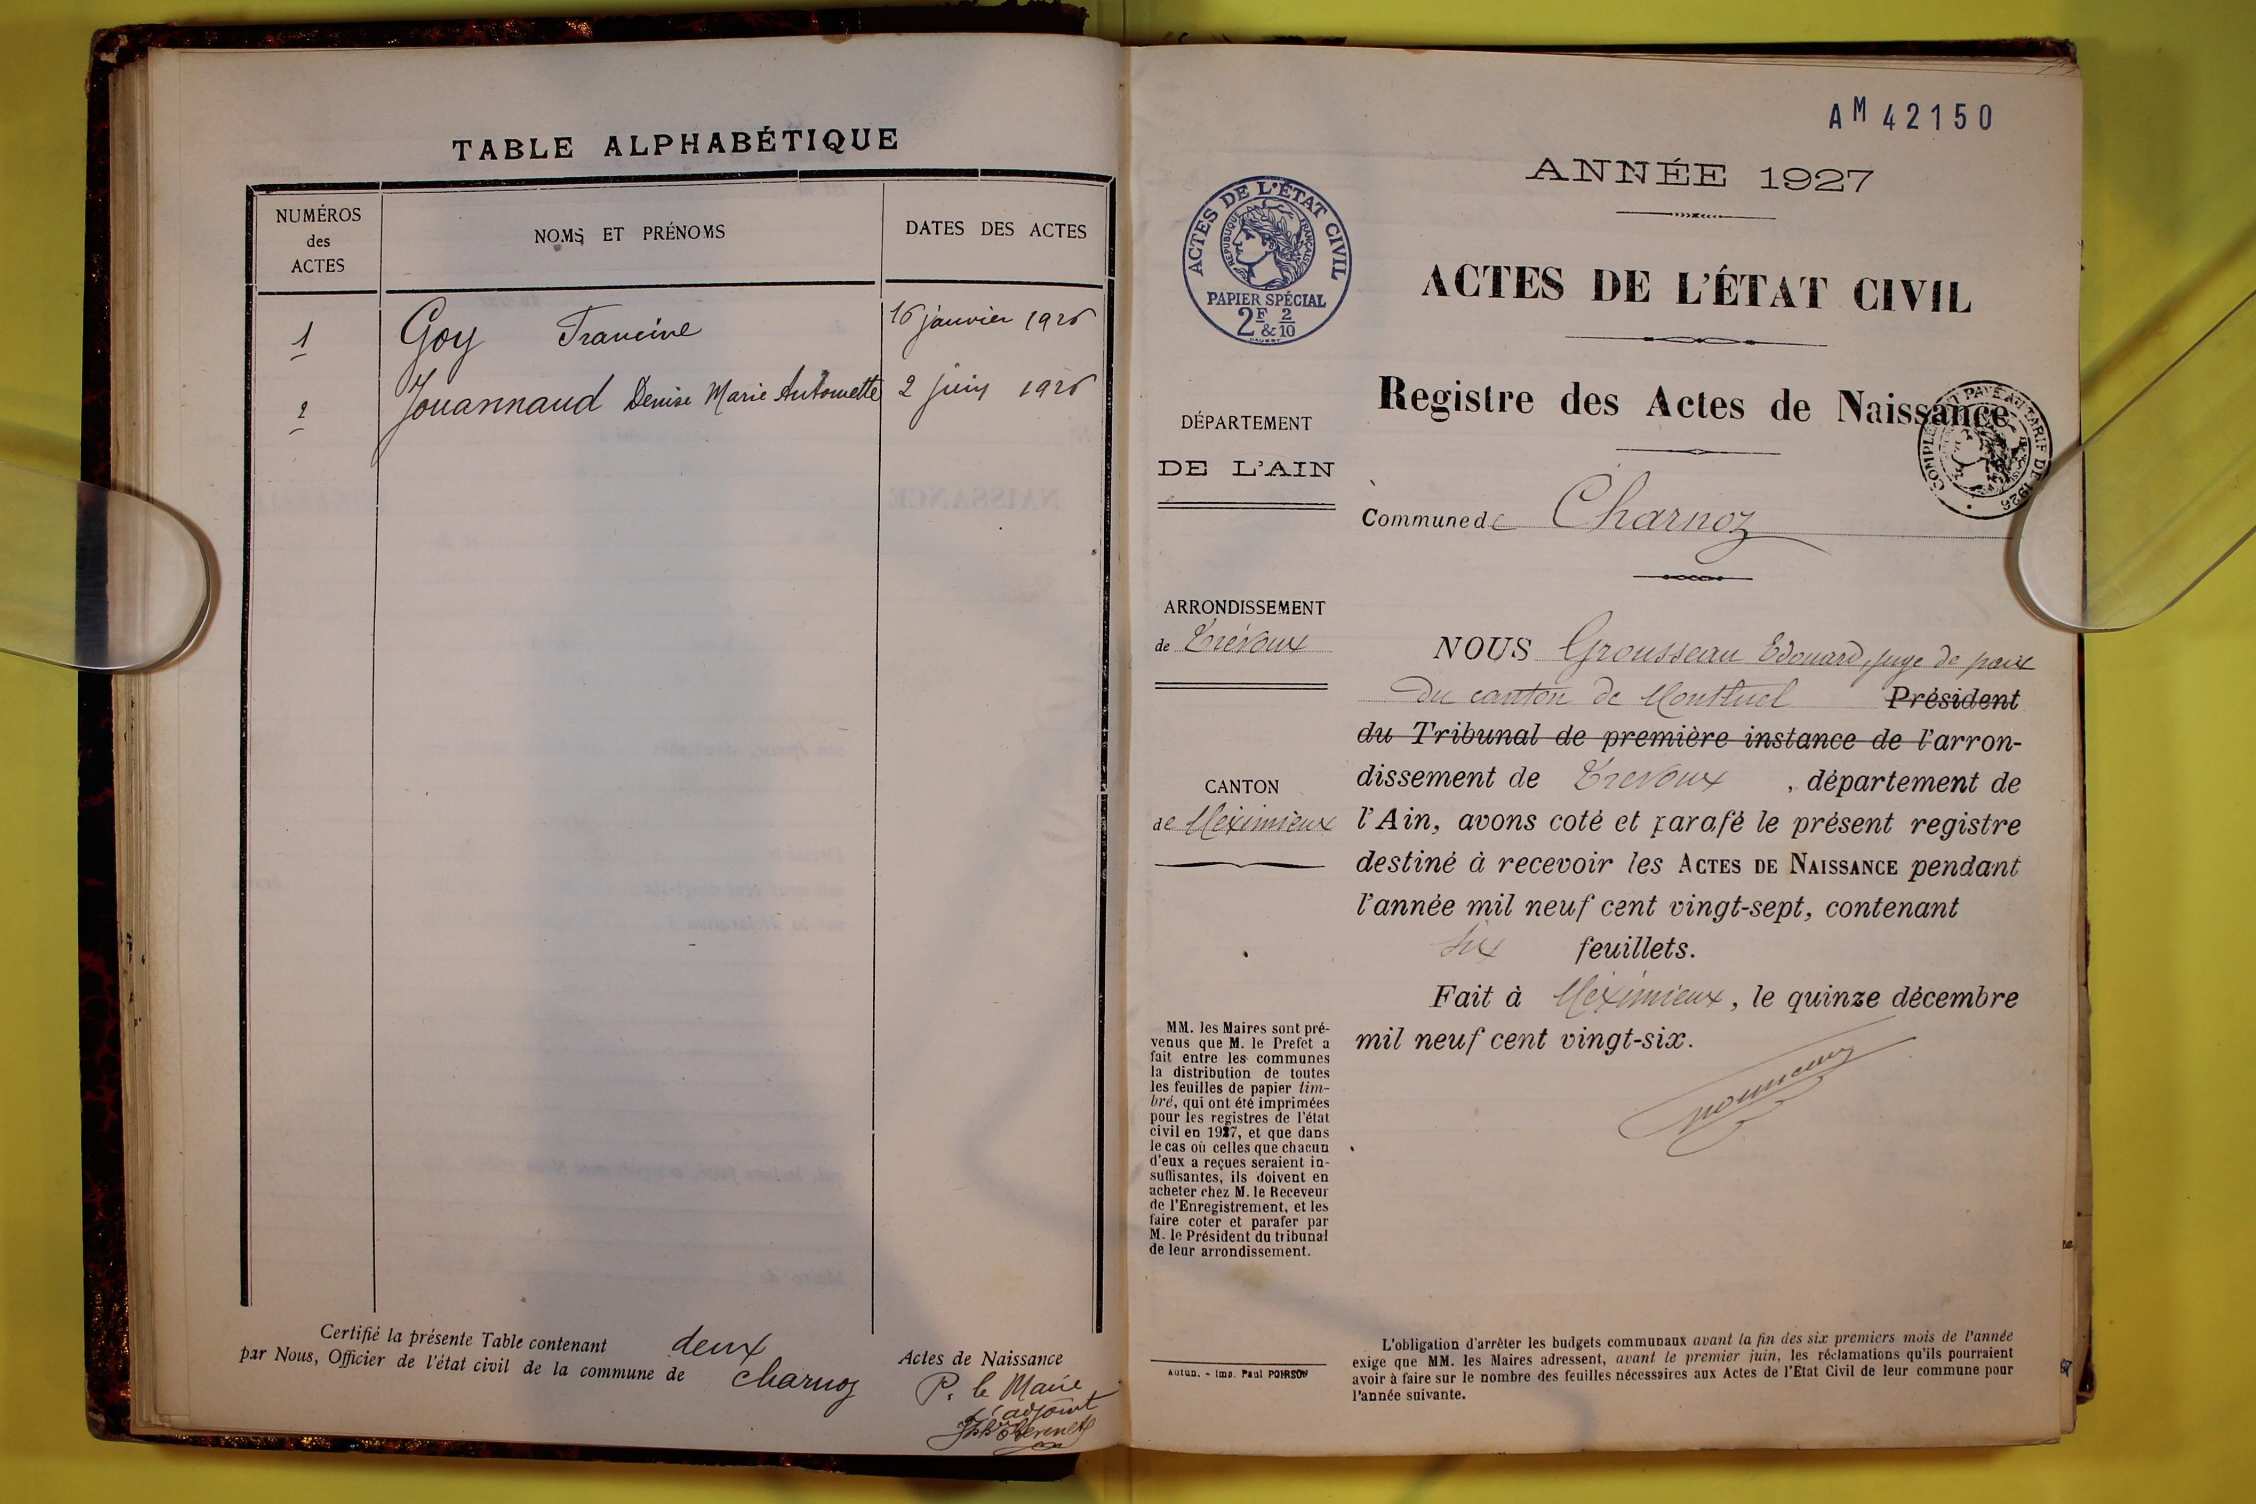 TABLE ALPHABÉTIQUE
NUMÉROS
des
ACTES
NOMS ET PRÉNOMS
DATES DES ACTES
1 Goy Francine 16 janvier 1926
2 Jouannaud Denise Marie Antoinette 2 juin 1926
Certifié la présente Table contenant deux Actes de Naissance
par Nous, Officier de l'état civil de la commune de Charnoz
P. le Maire
l'adjoint
AM 42150
ANNÉE 1927
ACTES DE L'ÉTAT CIVIL
RÉPUBLIQUE FRANÇAISE
PAPIER SPÉCIAL
2F & 2/10
ACTES DE L'ÉTAT CIVIL
Registre des Actes de Naissance
COMPLÉMENT PAYÉ AU TARIF DE 1926
DÉPARTEMENT
DE L'AIN
Commune de Charnoz
ARRONDISSEMENT
de Trévoux
CANTON
de Méximieux
NOUS Grousseau Edouard, juge de paix
du canton de Montluel Président
du Tribunal de première instance de l'arron-
dissement de Trevoux, département de
l'Ain, avons coté et parafé le présent registre
destiné à recevoir les ACTES DE NAISSANCE pendant
l'année mil neuf cent vingt-sept, contenant
six feuillets.
Fait à Méximieux, le quinze décembre
mil neuf cent vingt-six.
MM. les Maires sont pré-
venus que M. le Prefet a
fait entre les communes
la distribution de toutes
les feuilles de papier tim-
bré, qui ont été imprimées
pour les registres de l'état
civil en 1927, et que dans
le cas où celles que chacun
d'eux a reçues seraient in-
suffisantes, ils doivent en
acheter chez M. le Receveur
de l'Enregistrement, et les
faire coter et parafer par
M. le Président du tribunal
de leur arrondissement.
Autun. - Imp. Paul POIRSON
L'obligation d'arrêter les budgets communaux avant la fin des six premiers mois de l'année
exige que MM. les Maires adressent, avant le premier juin, les réclamations qu'ils pourraient
avoir à faire sur le nombre des feuilles nécessaires aux Actes de l'Etat Civil de leur commune pour
l'année suivante.